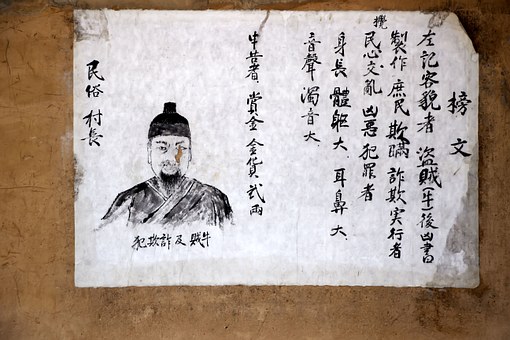 榜文
左記容貌者 盜賊(牛後凶書
製作 庶民 欺瞞 詐欺 実行者
攪
民心交亂 凶惡 犯罪者
身長 體軀大、耳鼻大、
音聲 濁音大、
申告者、賞金 金貨 弐両
民俗 村長
牛賊 及 詐欺犯